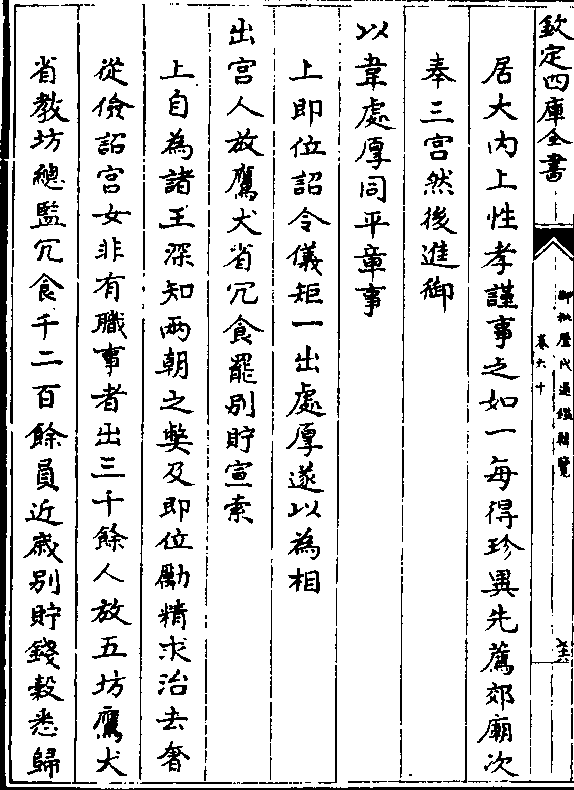 欽定四庫全書
御批歷代通鑑輯覽
卷六十
居大内上性孝謹事之如一每得珍異先薦郊廟次
奉三宫然後進御
以韋處厚同平章事
上即位詔令儀矩一出處厚遂以為相
出宫人放鷹犬省冗食罷别貯宣索
上自為諸王深知兩朝之弊及即位勵精求治去奢
從儉詔宫女非有職事者出三千餘人放五坊鷹犬
省教坊總監冗食千二百餘員近嵗别貯錢穀悉歸